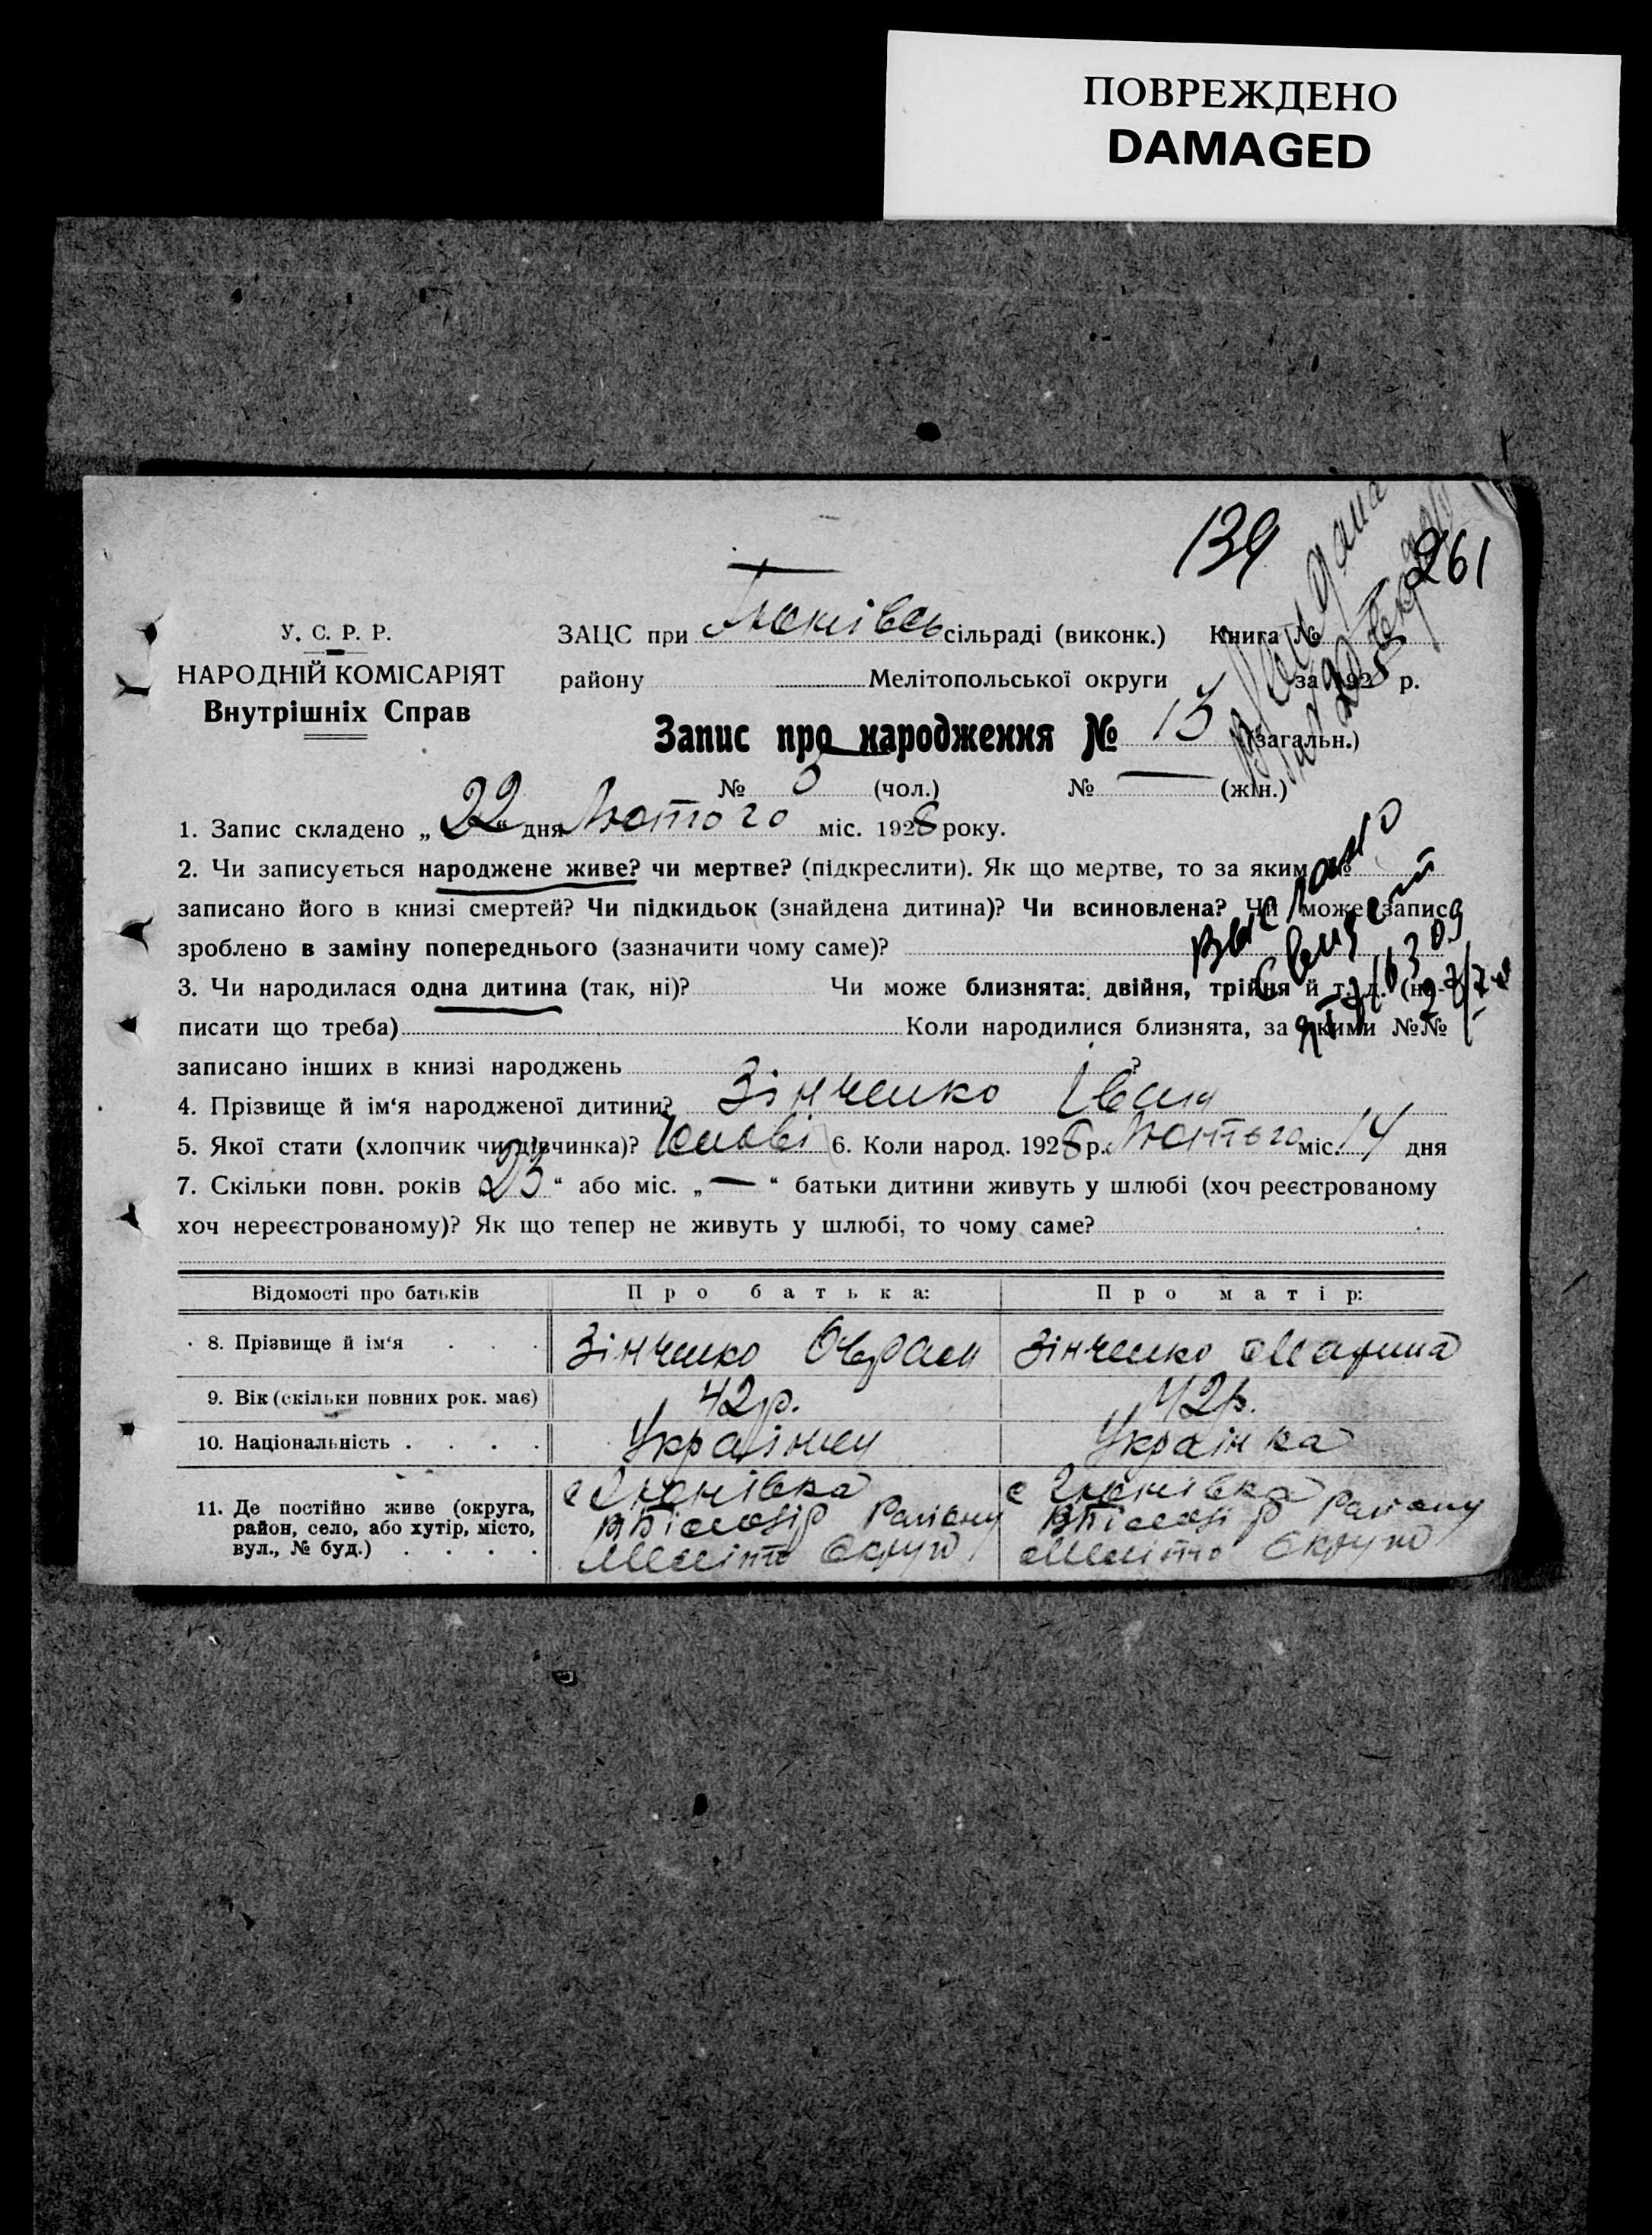 ПОВРЕЖДЕНО
DAMAGED
139
261
У. С. Р. Р.
НАРОДНІЙ КОМІСАРІЯТ
Внутрішніх Справ
ЗАЦС при сільраді (виконк.) Книга №
району Мелітопольської округи за 192 р.
Запис про народження № 13 (загальн.)
№ (чол.) № — (жін.)
1. Запис складено „ 22 “ дня Лютого міс. 1928 року.
2. Чи записується народжене живе? чи мертве? (підкреслити). Як що мертве, то за яким №
записано його в книзі смертей? Чи підкидьок (знайдена дитина)? Чи всиновлена? Чи може запис
зроблено в заміну попереднього (зазначити чому саме)?
3. Чи народилася одна дитина (так, ні)? Чи може близнята: двійня, трійня й т. д. (на-
писати що треба) Коли народилися близнята, за якими №№
записано інших в книзі народжень ?
4. Прізвище й ім‘я народженої дитини? Зінченко Іван
5. Якої стати (хлопчик чи дівчинка)? 6. Коли народ. 1928 р. Лютого міс. 14 дня
7. Скільки повн. років „ 23 “ або міс. „ — “ батьки дитини живуть у шлюбі (хоч реєстрованому
хоч нереєстрованому)? Як що тепер не живуть у шлюбі, то чому саме?
Відомості про батьків Про батька: Про матір:
8. Прізвище й ім‘я Зінченко Зінченко Марина
9. Вік (скільки повних рок. має) 42 р. 42 р.
10. Національність Українец Українка
11. Де постійно живе (округа,
район, село, або хутір, місто,
вул., № буд.)
Району Району
Меліто Округи Меліто Округи